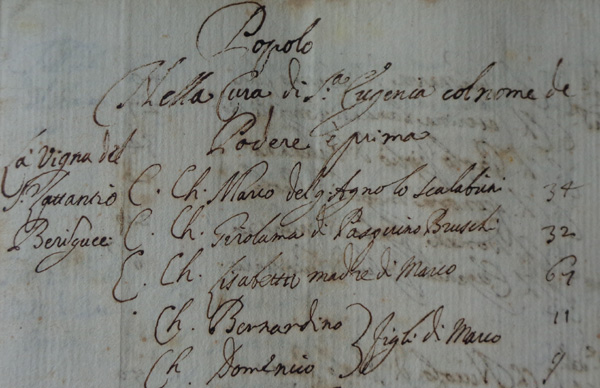 Popolo
Nella Cura di S.ta Eugenia col nome de
Poderi è prima
La Vigna del
S.r Lattantio
Berigucci
C. Ch. Marco del q. Agnolo Scalabrini 34
C. Ch. Girolama di Pasquino Bruschi 32
C. Ch. Lisabetta madre di Marco 67
Ch. Bernardino 11
figli di Marco
Ch. Domenico 9